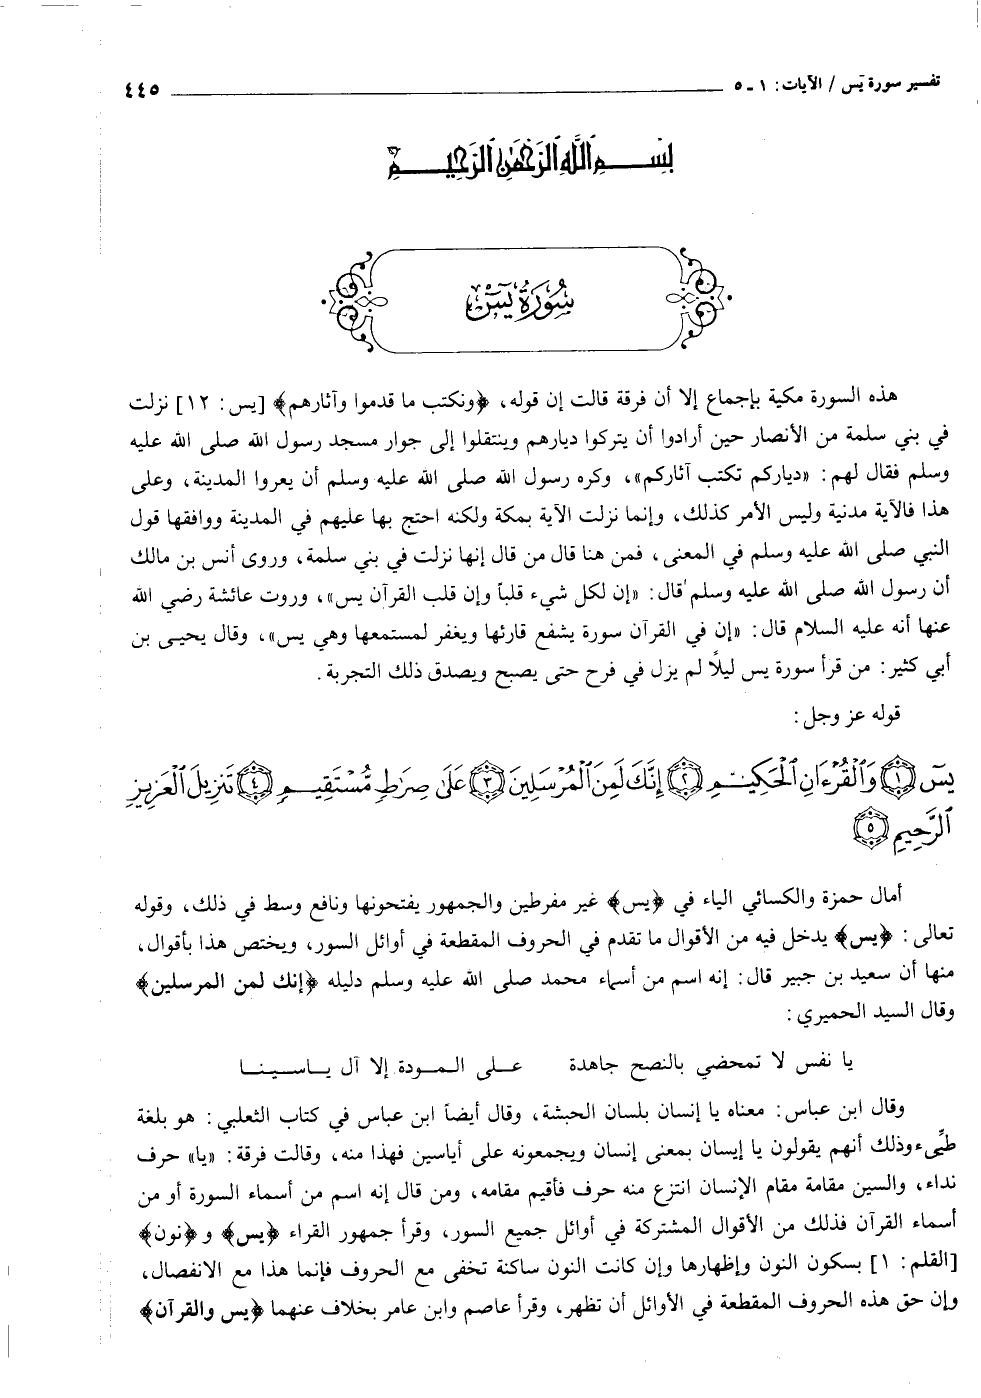 تفسير سورة يٓس / الآيات: ١ - ٥ ٤٤٥
بِسْمِ ٱللَّهِ ٱلرَّحْمَٰنِ ٱلرَّحِيمِ
سُورَةُ يسٓ
هذه السورة مكية بإجماع إلا أن فرقة قالت إن قوله، ﴿ونكتب ما قدموا وآثارهم﴾ [يس: ١٢] نزلت
في بني سلمة من الأنصار حين أرادوا أن يتركوا ديارهم وينتقلوا إلى جوار مسجد رسول الله صلى الله عليه
وسلم فقال لهم: «دياركم تكتب آثاركم»، وكره رسول الله صلى الله عليه وسلم أن يعروا المدينة، وعلى
هذا فالآية مدنية وليس الأمر كذلك، وإنما نزلت الآية بمكة ولكنه احتج بها عليهم في المدينة ووافقها قول
النبي صلى الله عليه وسلم في المعنى، فمن هنا قال من قال إنها نزلت في بني سلمة، وروى أنس بن مالك
أن رسول الله صلى الله عليه وسلم قال: «إن لكل شيء قلباً وإن قلب القرآن يس»، وروت عائشة رضي الله
عنها أنه عليه السلام قال: «إن في القرآن سورة يشفع قارئها ويغفر لمستمعها وهي يس»، وقال يحيى بن
أبي كثير: من قرأ سورة يس ليلًا لم يزل في فرح حتى يصبح ويصدق ذلك التجربة.
قوله عز وجل:
يسٓ ١ وَٱلْقُرْءَانِ ٱلْحَكِيمِ ٢ إِنَّكَ لَمِنَ ٱلْمُرْسَلِينَ ٣ عَلَىٰ صِرَٰطٍ مُّسْتَقِيمٍ ٤ تَنزِيلَ ٱلْعَزِيزِ
ٱلرَّحِيمِ ٥
أمال حمزة والكسائي الياء في ﴿يس﴾ غير مفرطين والجمهور يفتحونها ونافع وسط في ذلك، وقوله
تعالى: ﴿يس﴾ يدخل فيه من الأقوال ما تقدم في الحروف المقطعة في أوائل السور، ويختص هذا بأقوال،
منها أن سعيد بن جبير قال: إنه اسم من أسماء محمد صلى الله عليه وسلم دليله ﴿إنك لمن المرسلين﴾
وقال السيد الحميري:
يا نفس لا تمحضي بالنصح جاهدة على المودة إلا آل ياسينا
وقال ابن عباس: معناه يا إنسان بلسان الحبشة، وقال أيضاً ابن عباس في كتاب الثعلبي: هو بلغة
طيِّىء وذلك أنهم يقولون يا إيسان بمعنى إنسان ويجمعونه على أياسين فهذا منه، وقالت فرقة: «يا» حرف
نداء، والسين مقامة مقام الإنسان انتزع منه حرف فأقيم مقامه، ومن قال إنه اسم من أسماء السورة أو من
أسماء القرآن فذلك من الأقوال المشتركة في أوائل جميع السور، وقرأ جمهور القراء ﴿يس﴾ و ﴿نون﴾
[القلم: ١] بسكون النون وإظهارها وإن كانت النون ساكنة تخفى مع الحروف فإنما هذا مع الانفصال،
وإن حق هذه الحروف المقطعة في الأوائل أن تظهر، وقرأ عاصم وابن عامر بخلاف عنهما ﴿يس والقرآن﴾